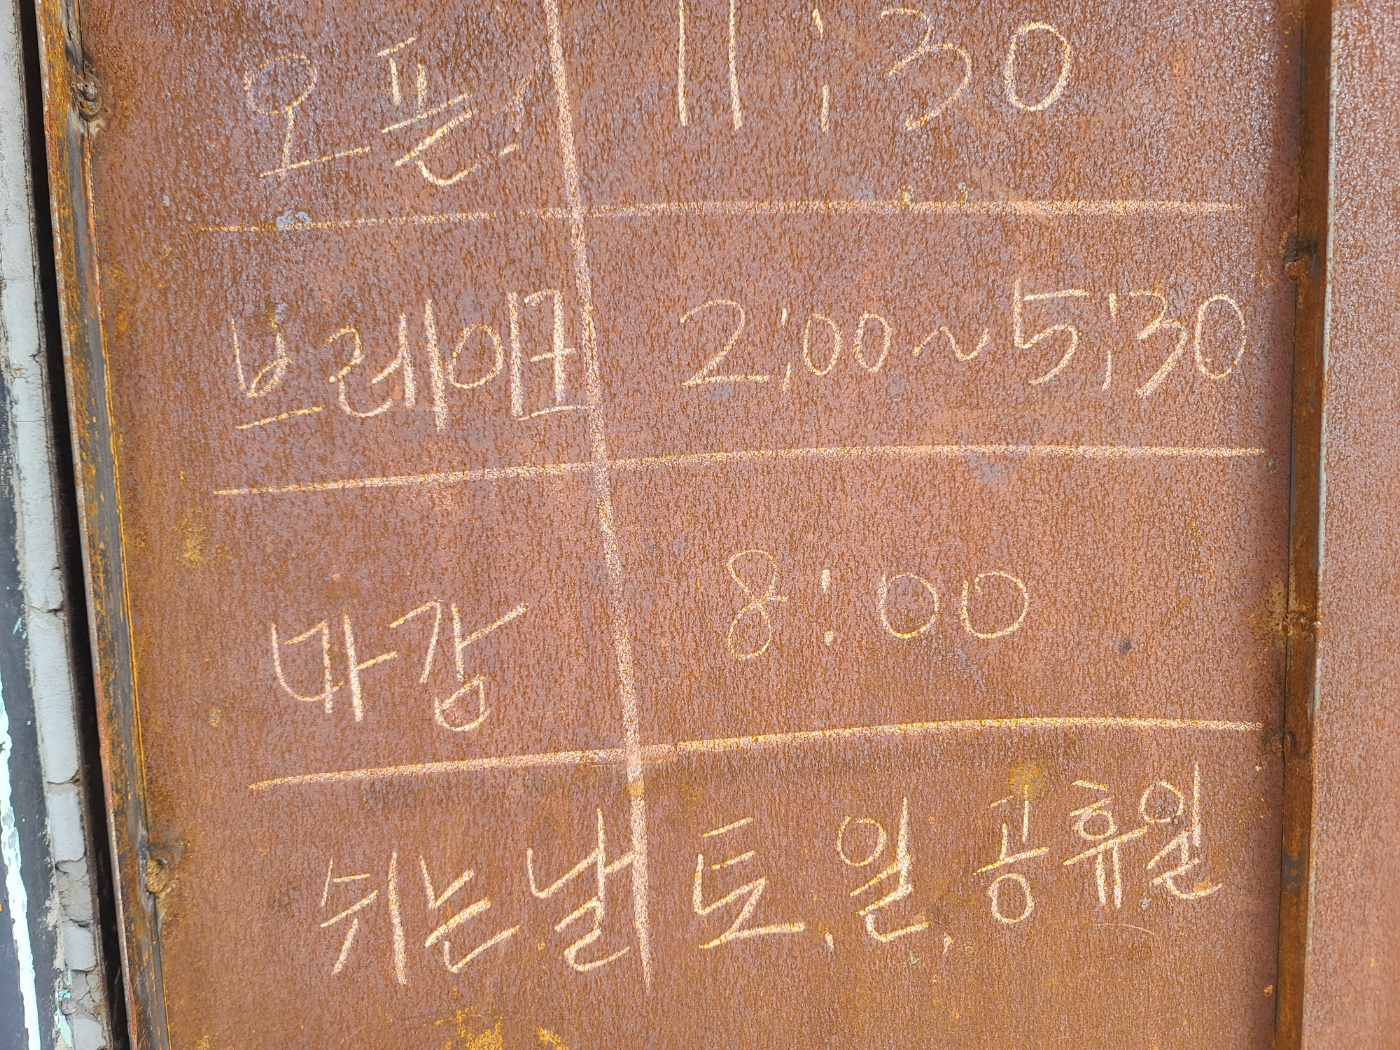 오픈 11:30
브레이크 2:00~5:30
마감 8:00
쉬는날 토, 일, 공휴일